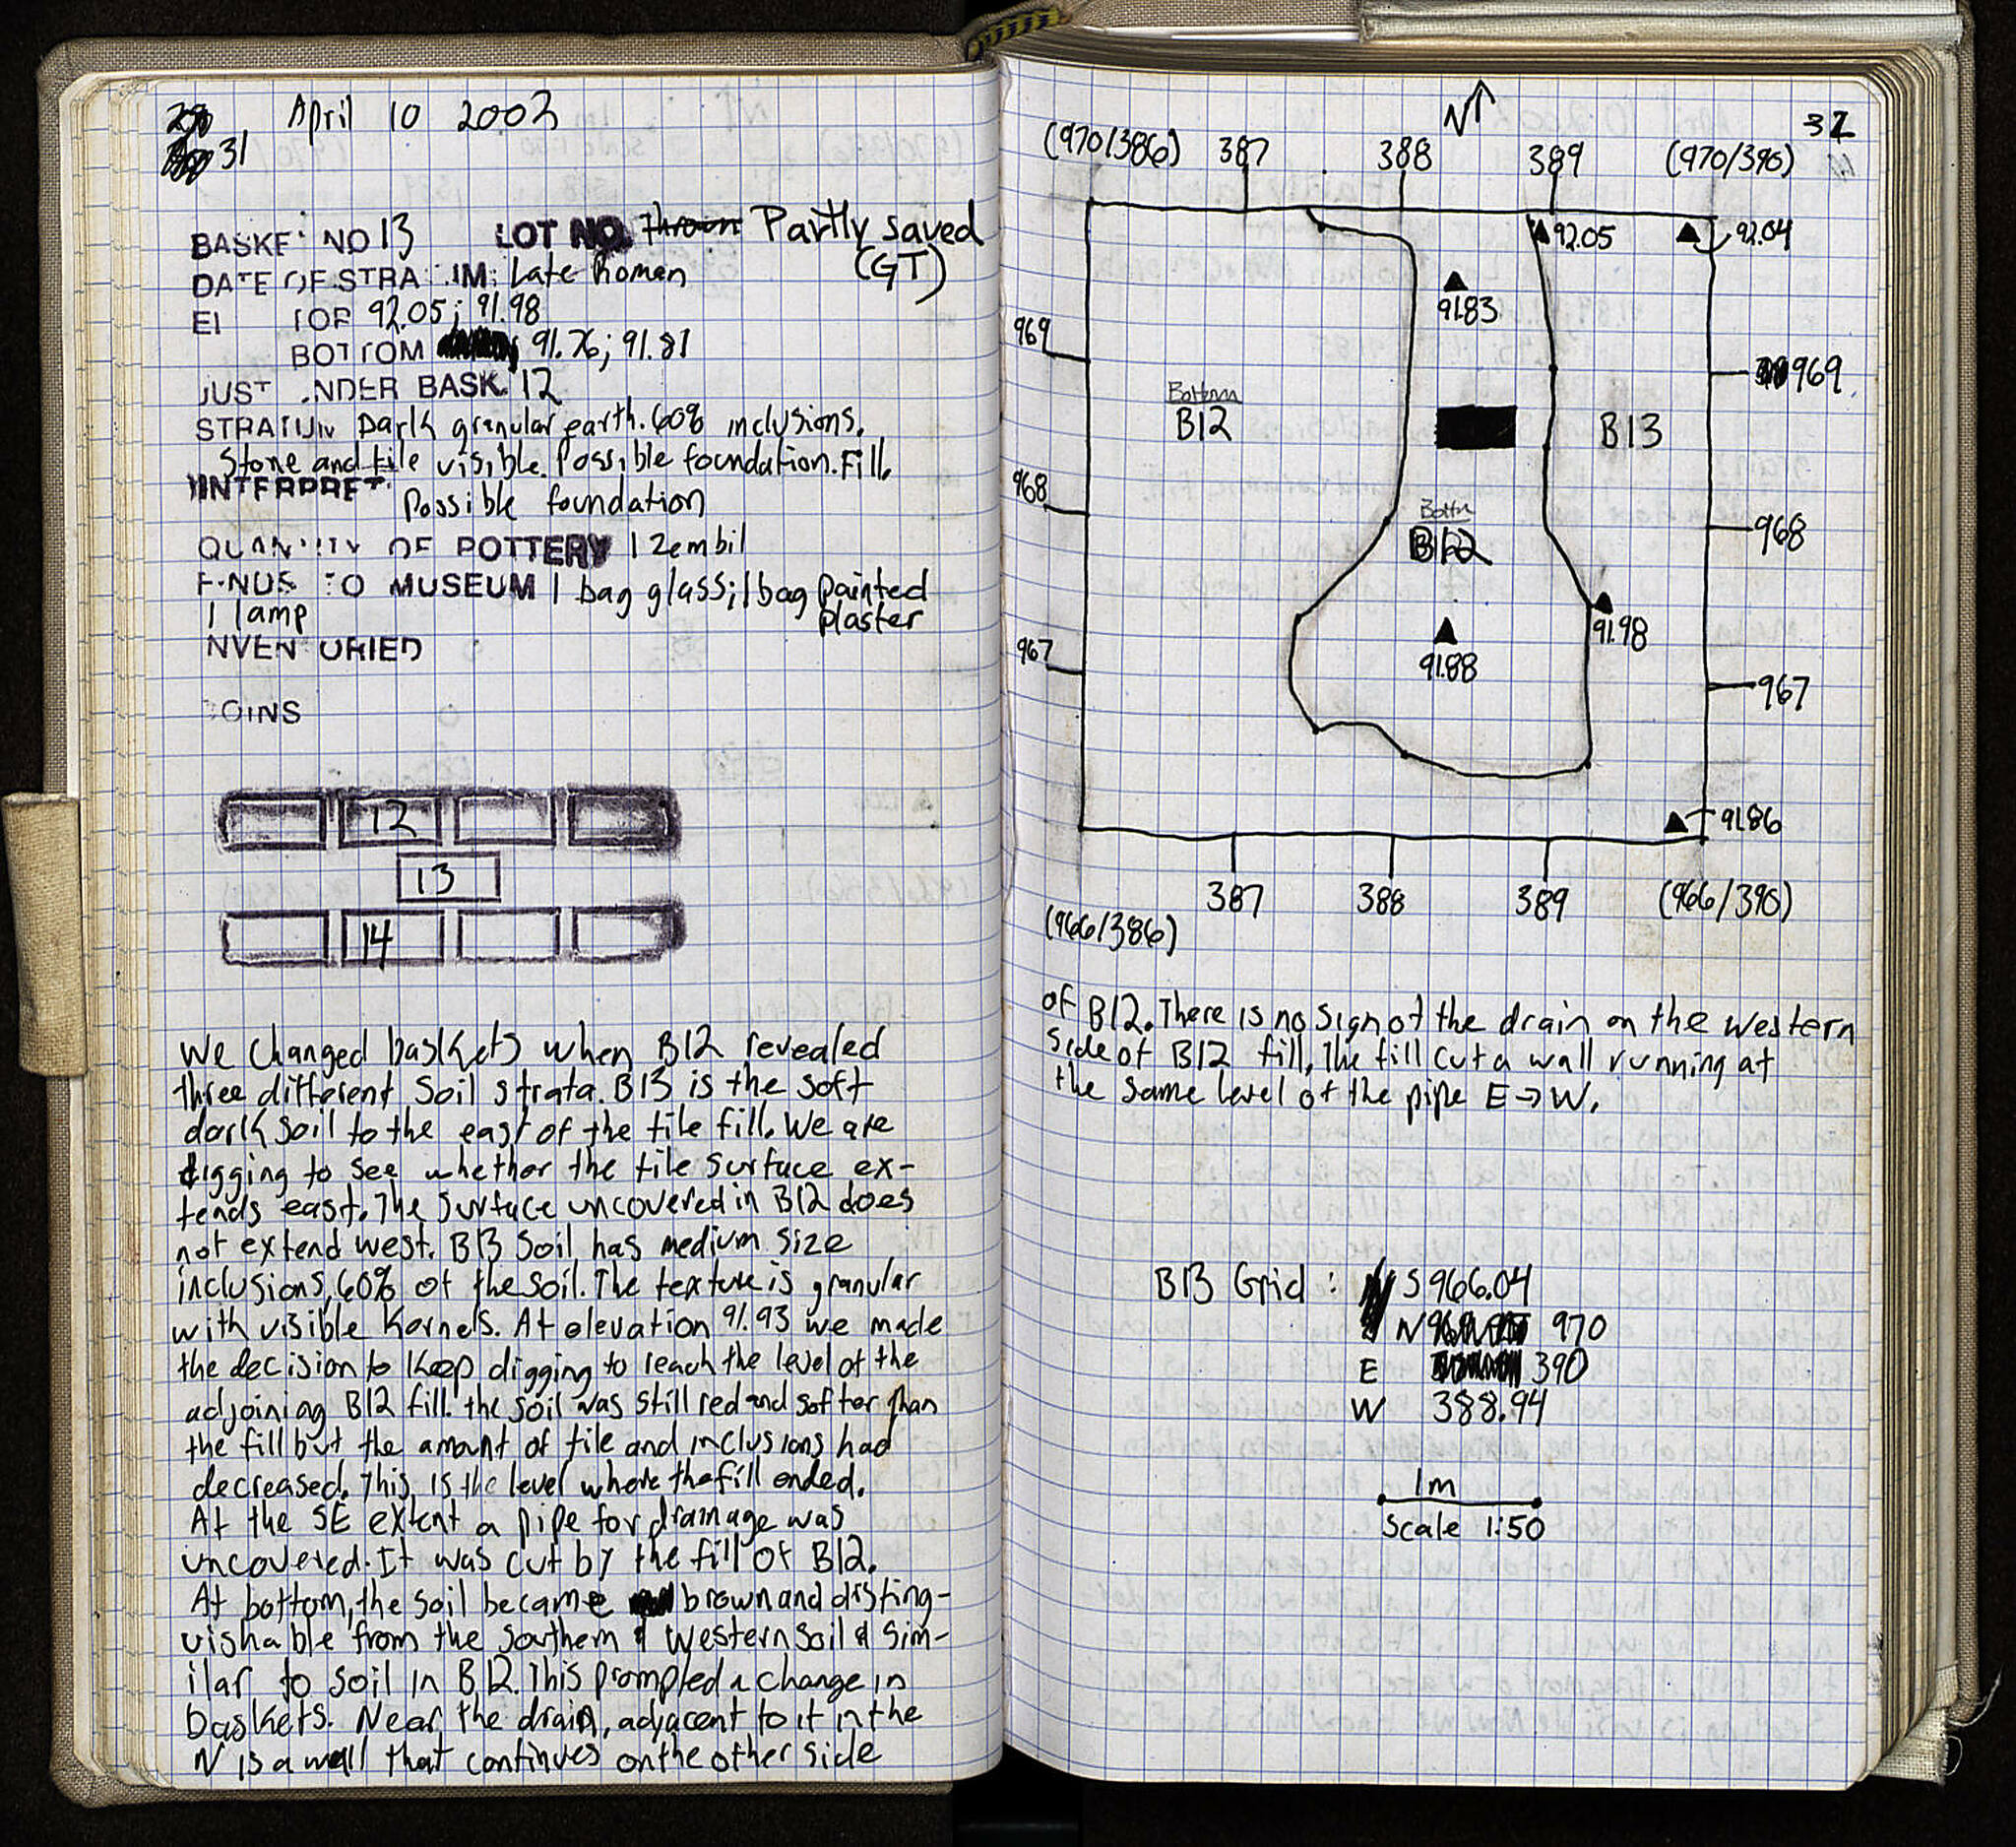 31
April 10 2003
BASKET NO 13 LOT NO. Partly saved
(GT)
DATE OF STRATUM: Late Roman
EL TOP 92.05; 91.98
BOTTOM 91.76; 91.81
JUST UNDER BASK. 12
STRATUM Dark granular earth. 60% inclusions.
Stone and tile visible. Possible foundation. Fill.
INTERPRET. Possible foundation
QUANTITY OF POTTERY 1 zembil
FINDS TO MUSEUM 1 bag glass; 1 bag painted
plaster
1 lamp
INVENTORIED
COINS
12
13
14
We changed baskets when B12 revealed
three different soil strata. B13 is the soft
dark soil to the east of the tile fill. We are
digging to see whether the tile surface ex-
tends east. The surface uncovered in B12 does
not extend west. B13 soil has medium size
inclusions, 60% of the soil. The texture is granular
with visible kernels. At elevation 91.93 we made
the decision to keep digging to reach the level of the
adjoining B12 fill. the soil was still red and softer than
the fill but the amount of tile and inclusions had
decreased. This is the level where the fill ended.
At the SE extent a pipe for drainage was
uncovered. It was cut by the fill of B12.
At bottom, the soil became brown and disting-
uishable from the southern & western soil & sim-
ilar to soil in B12. This prompted a change in
baskets. Near the drain, adjacent to it in the
N is a wall that continues on the other side
32
N
(970/386) 387 388 389 (970/390)
92.05 92.04
91.83
969 969
Bottom
B12 B13
968 968
B12
91.98
967 91.88 967
91.86
387 388 389 (966/390)
(966/386)
of B12. There is no sign of the drain on the western
side of B12 fill. The fill cut a wall running at
the same level of the pipe E → W.
B13 Grid: S 966.04
N 970
E 390
W 388.94
1m
Scale 1:50